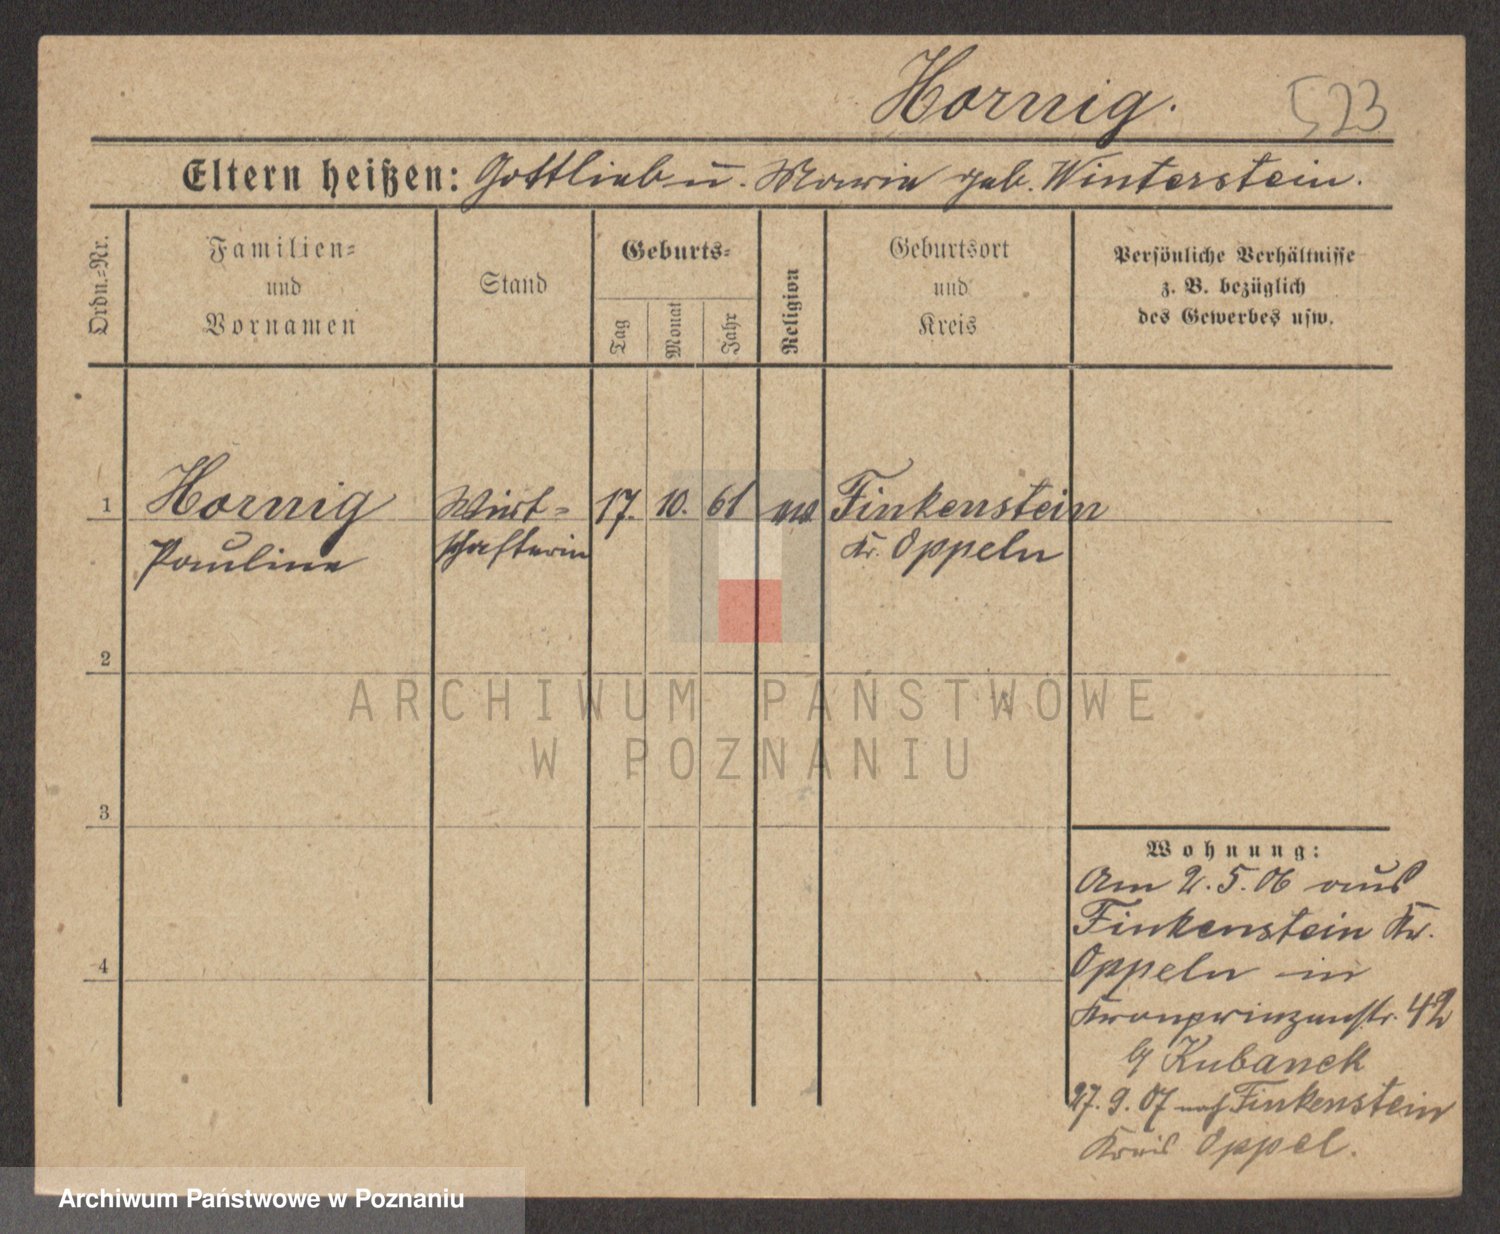 Hornig. 523
Eltern heißen: Gottlieb u. Marie geb. Winterstein.
Ordn.=Nr.
Familien=
und
Vornamen
Stand
Geburts=
Tag
Monat
Jahr
Religion
Geburtsort
und
Kreis
Persönliche Verhältnisse
z. B. bezüglich
des Gewerbes usw.
1
Hornig
Pauline
Wirt=
schafterin
17. 10. 61
Finkenstein
Kr. Oppeln
2
3
4
Wohnung:
Am 2. 5. 06 aus
Finkenstein Kr.
Oppeln in
Kronprinzenstr. 42
b/ Kubanek
27. 9. 07 nach Finkenstein
Kreis Oppel.
ARCHIWUM PAŃSTWOWE
W POZNANIU
Archiwum Państwowe w Poznaniu